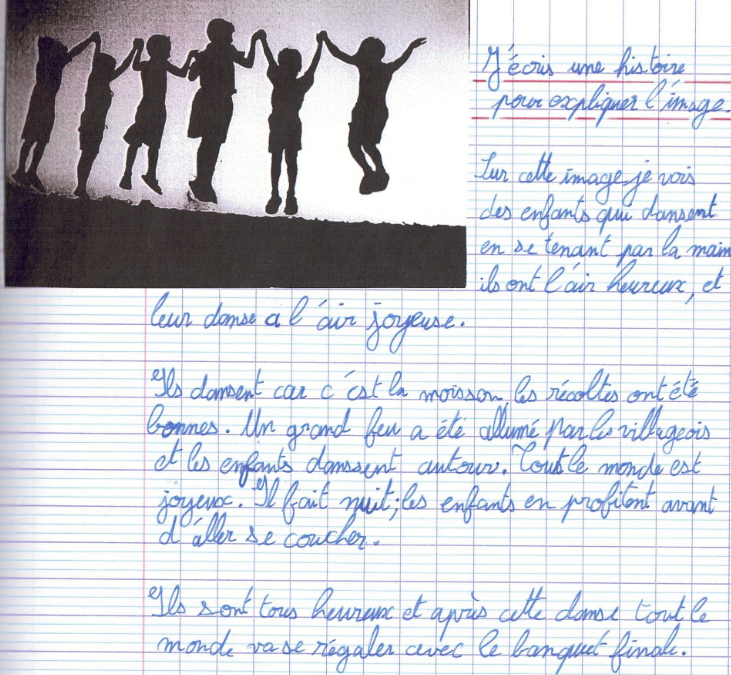 J'écris une histoire
pour expliquer l'image
Sur cette image je vois
des enfants qui dansent
en se tenant par la main
ils ont l'air heureux, et
leur danse a l'air joyeuse.
Ils dansent car c'est la moisson, les récoltes ont été
bonnes. Un grand feu a été allumé par les villageois
et les enfants danssent autour. Tout le monde est
joyeux. Il fait nuit; les enfants en profitent avant
d'aller se coucher.
Ils sont tous heureux et après cette danse tout le
monde va se régaler avec le banquet finale.